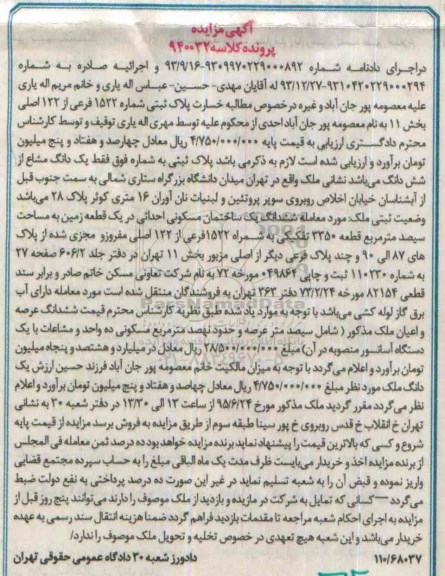 آگهی مزایده
پرونده کلاسه ۹۴۰۰۳۲
دراجرای دادنامه شماره ۹۳۰۹۹۷۰۲۲۹۰۰۰۸۹۲-۹۳/۹/۱۶ و اجرائیه صادره به شماره
۹۳۱۰۴۲۰۲۲۹۰۰۰۲۹۴-۹۳/۱۲/۲۷ له آقایان مهدی-حسین-عباس اله یاری و خانم مریم اله یاری
علیه معصومه پور جان آباد و غیره درخصوص مطالبه خسارت پلاک ثبتی شماره ۱۵۲۲ فرعی از ۱۲۲ اصلی
بخش ۱۱ به نام معصومه پور جان آباد احدی از محکوم علیه توسط مهری اله یاری توقیف و توسط کارشناس
محترم دادگستری ارزیابی به قیمت پایه ۴/۷۵۰/۰۰۰/۰۰۰ ریال معادل چهارصد و هفتاد و پنج میلیون
تومان برآورد و ارزیابی شده است لازم به ذکرمی باشد پلاک ثبتی به شماره فوق فقط یک دانگ مشاع از
شش دانگ می‌باشد نشانی ملک واقع در تهران میدان دانشگاه بزرگراه ستاری شمالی به سمت جنوب قبل
از آبشناسان خیابان اخلاص روبروی سوپر پروتئین و لبنیات نان آوران ۱۶ متری کوثر پلاک ۲۸ می‌باشد
وضعیت ثبتی ملک مورد معامله ششدانگ یک ساختمان مسکونی احداثی در یک قطعه زمین به مساحت
سیصد مترمربع قطعه ۳۳۵۰ تفکیکی به شماره ۱۵۲۲ فرعی از ۱۲۲ اصلی مفروز و مجزی شده از پلاک
های ۸۷ الی ۹۰ و چند پلاک فرعی دیگر از اصلی مزبور بخش ۱۱ تهران در دفتر جلد ۶۰۶/۲ صفحه ۲۷
به شماره ۱۱۰۲۳۰ ثبت و چاپی ۰۴۹۸۶۴ مورخه ۷۲ به نام شرکت تعاونی مسکن خاتم صادر و برابر سند
قطعی ۸۲۱۵۴ مورخه ۷۳/۲/۲۴ دفتر ۳۶۳ تهران به فروشندگان منتقل شده است مورد معامله دارای آب
برق گاز لوله کشی می‌باشد با توجه به موارد یاد شده طبق نظریه کارشناس محترم قیمت ششدانگ عرصه
و اعیان ملک مذکور ( شامل سیصد متر عرصه و حدود نهصد مترمربع مسکونی ده واحد و مشاعات با یک
دستگاه آسانسور منصوبه در آن) مبلغ ۲۸/۵۰۰/۰۰۰/۰۰۰ ریال معادل دو میلیارد و هشتصد و پنجاه میلیون
تومان برآورد و اعلام می‌گردد با توجه به میزان مالکیت خانم معصومه پور جان آباد فرزند حسین ارزش یک
دانگ ملک مورد نظر مبلغ ۴/۷۵۰/۰۰۰/۰۰۰ ریال معادل چهاصد و هفتاد و پنج میلیون تومان برآورد و اعلام
نظر می‌گردد مقرر گردید ملک مذکور مورخ ۹۵/۶/۲۴ از ساعت ۱۳ الی ۱۳/۳۰ در دفتر شعبه ۳۰ به نشانی
تهران خ انقلاب خ قدس روبروی خ پور سینا طبقه سوم از طریق مزایده به فروش برسد مزایده از قیمت پایه
شروع و کسی که بالاترین قیمت را پیشنهاد نماید برنده مزایده خواهد بود ده درصد ثمن معامله فی المجلس
از برنده مزایده اخذ و خریدار می‌بایست ظرف مدت یک ماه الباقی مبلغ را به حساب سپرده مجتمع قضایی
واریز نموده و قبض آن را به شعبه تسلیم نماید در غیر این صورت ده درصد پرداختی به نفع دولت ضبط
می‌گردد – کسانی که تمایل به شرکت در مزایده و بازدید از ملک موصوف را دارند می‌توانند پنج روز قبل از
مزایده به اجرای احکام شعبه مراجعه تا مقدمات بازدید فراهم گردد ضمنا هزینه انتقال سند رسمی به عهده
خریدار می‌باشد و این شعبه هیچ تعهدی در خصوص تخلیه و تحویل ملک موصوف را ندارد/
۱۱۰/۶۸۰۳۷ دادورز شعبه ۳۰ دادگاه عمومی حقوقی تهران